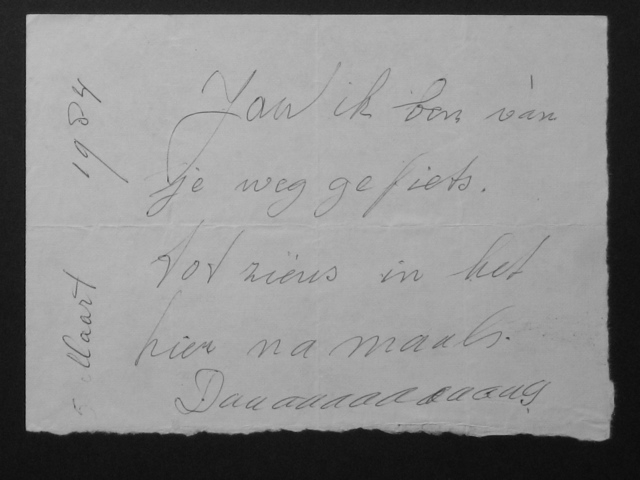 Jan ik ben van
je weg gefiets.
tot ziens in het
hier na maals.
Daaaaaaaaaaag
5 Maart 1984